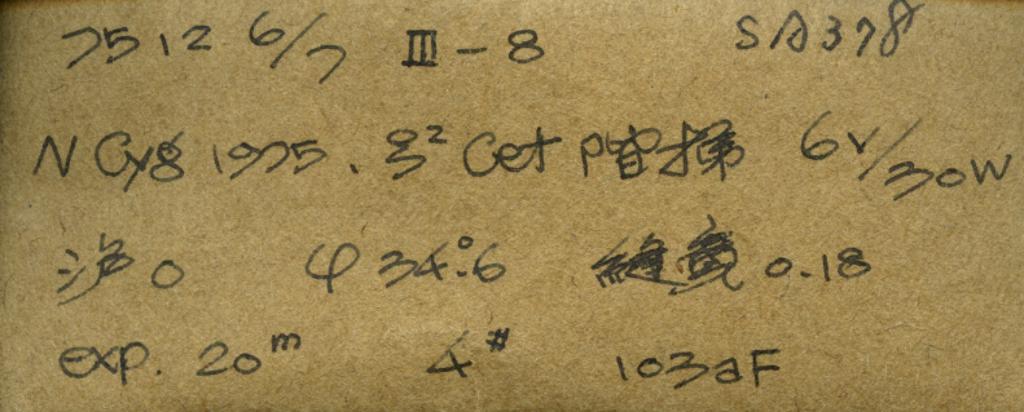 7512 6/7 III-8 SA378
N Cyg 1975. ξ² Cet 阶梯 6V/30W
沪0 φ34°.6 缝宽 0.18
exp. 20ᵐ 4# 103aF